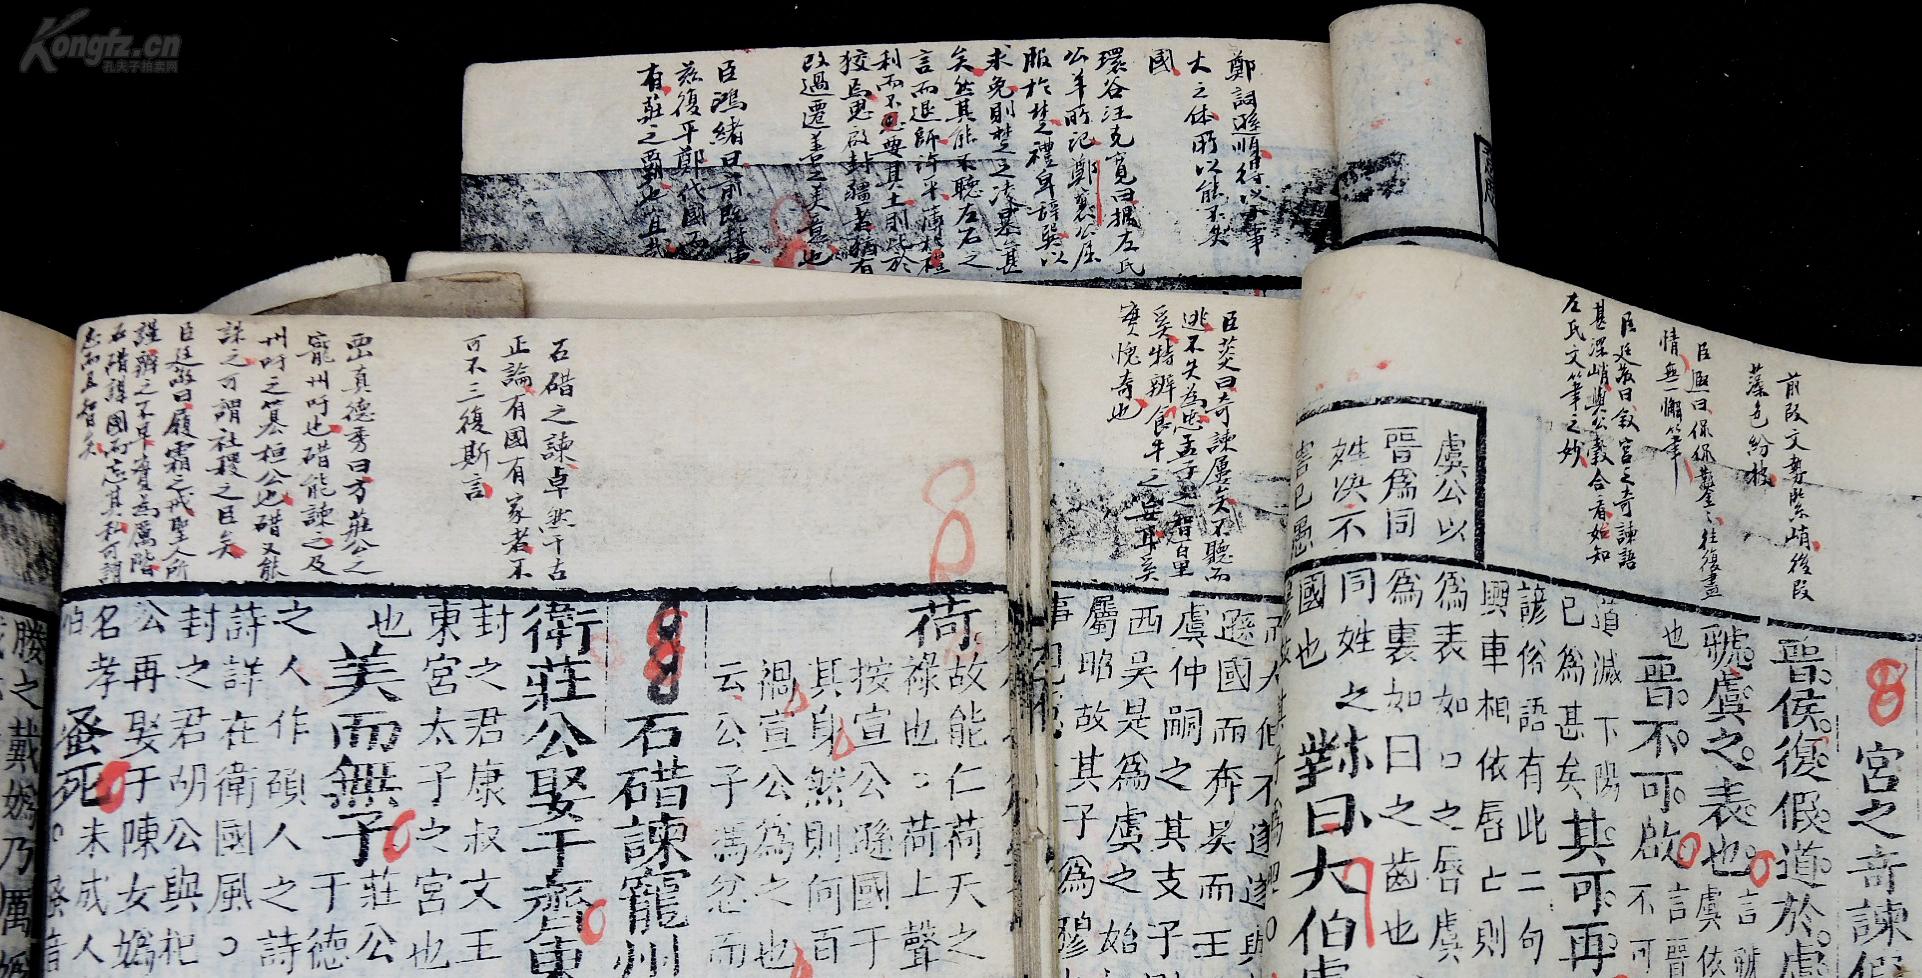 Kongfz.cn
孔夫子拍卖网
鄭詞遜順得以小事
大之体所以能不失
國
環谷汪克寬曰据左氏
公羊所記鄭襄公屈
服於楚禮卑辞巽以
求免則楚之凌暴甚
矣然其能不聽左右之
言而退師許平薄於
利而不
改過遷善之美意也
臣鴻緒曰前既
茲復平鄭代國而
有莊之霸也宜哉
臣英曰奇諫屢矣不聽而
逃不失為忠孟子之智百里
奚特辨食牛之妄耳奚
實愧奇也
前段文勢緊峭後段
藻色紛披
往復盡
情無懈筆
臣廷敬曰叙宮之奇諫語
甚深峭與公穀合看始知
左氏文筆之妙
石碏之諫卓然千古
正論有國有家者不
可不三復斯言
西山真德秀曰方莊公之
寵州吁也碏能諫之及
州吁之篡桓公也碏又能
誅之可謂社稷之臣矣
臣廷敬曰履霜之戒聖人所
謹辨之不早實為厲階
石碏謀國而忘其私可謂
忠而且智矣
宮之奇諫假
晉侯復假道於虞
虢虞之表也
言虢
虞依
也
晉不可啟
言晉
不可
道滅下陽
已為甚矣
其可再
諺俗語有此二句
輿車相依唇亡則
為表如口之唇虞
為裏如曰之齒也
虞公以
晉為同
姓決不
害已愚
同姓之
國也
對曰大伯虞
不遂遂與
遜國而奔吳而王
虞仲嗣之其支子
西吳是為虞之始
屬昭故其子為穆
荷
故能仁荷天之
祿也荷上聲
按宣公遜國于
其身然則何百
禍宣公為之也
云公子馮忿而
石碏諫寵州
衛莊公娶于齊東
封之君康叔文王
東宮太子之宮也
也
美而無子
莊公
于德
之人作碩人之詩
詩詳在衛國風
封之君胡公與杞
公再娶于陳女媯
名孝
伯
蚤死
未成人
蚤音
媵之戴媯乃厲媯